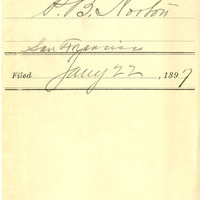 S. B. Norton
San Francisco
Filed Jany 22, 1897